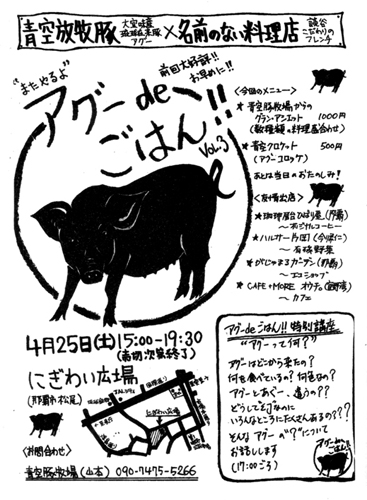 青空放牧豚 大宜味産 琉球在来豚 アグー × 名前のない料理店 読谷 こだわりの フレンチ
"またやるよ"
前回大好評!!
お早めに!!
アグーde
ごはん!!
Vol.3
<今回のメニュー>
★ 青空豚牧場からの
グランアシエット 1000円
(数種類の料理盛合わせ)
★ 青空クロケット 500円
(アグーコロッケ)
あとは当日のおたのしみ!
<友情出店>
★珈琲屋台ひばり屋(那覇)
~オリジナルコーヒー
★ハルサー片岡(今帰仁)
~有機野菜
★がじまるガーデン(那覇)
~エコショップ
★CAFE+MORE
~カフェ
4月25日(土)15:00-19:30
(売切次第終了)
にぎわい広場
(那覇市松尾)
<お問合わせ>
青空豚牧場(山本) 090-7475-5266
にぎわい広場
アグーdeごはん!!特別講座
"アグーって何?"
アグーはどこから来たの?
何を食べているの?何色なの?
アグーとあぐー、違うの??
どうして
いろんなところにたくさんあるの???
そんなアグーの"?"について
お話します
(17:00ごろ)